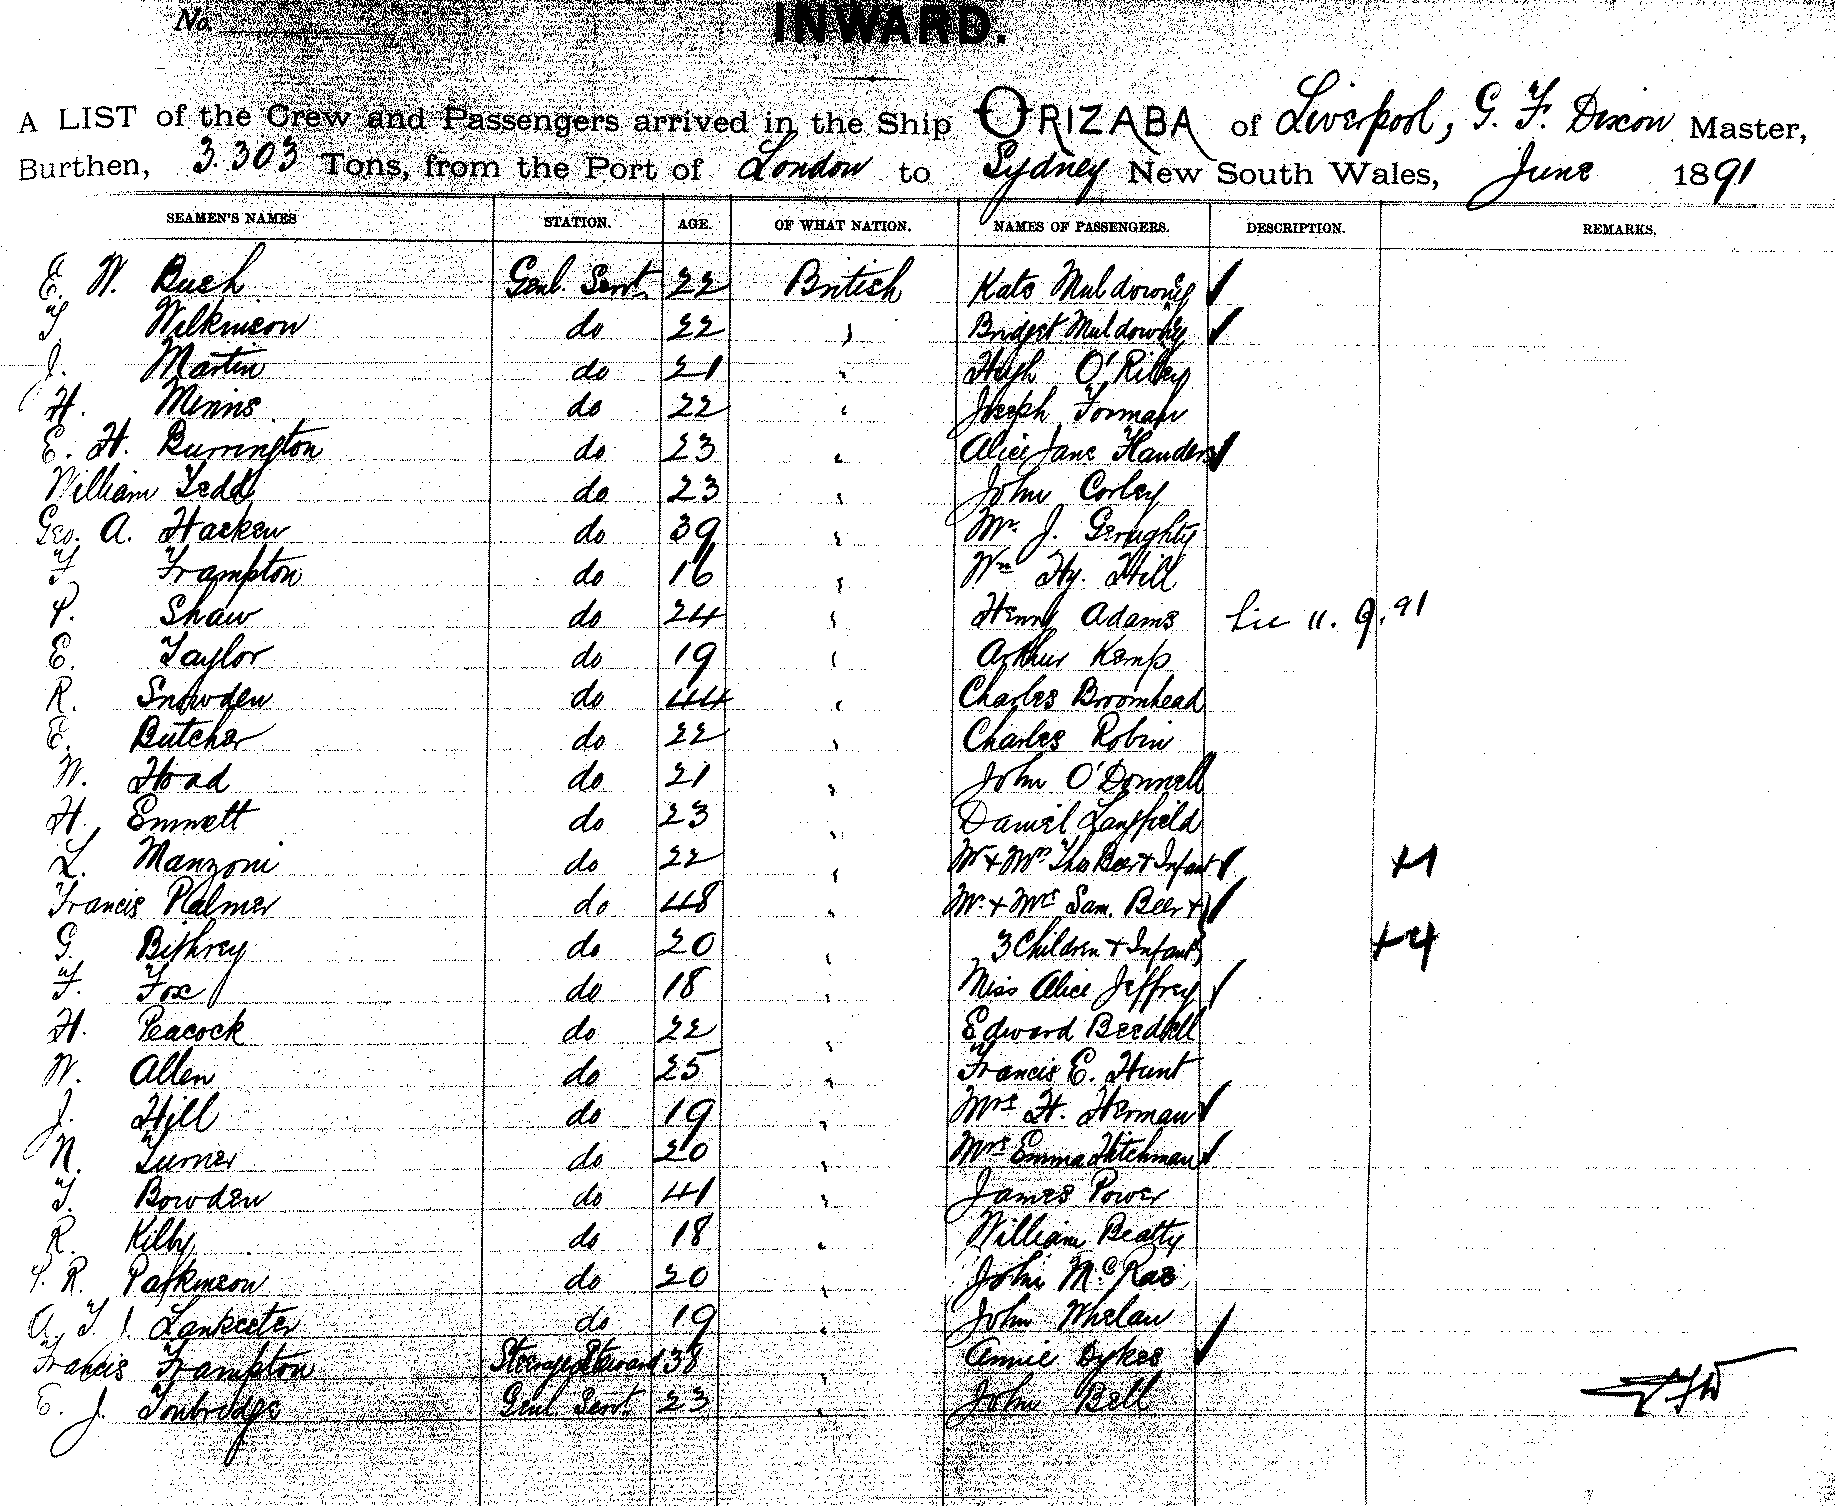 No.
INWARD.
A LIST of the Crew and Passengers arrived in the Ship ORIZABA of Liverpool, G. F. Dixon Master,
Burthen, 3.303 Tons, from the Port of London to Sydney New South Wales, June 1891
SEAMEN'S NAMES STATION. AGE. OF WHAT NATION. NAMES OF PASSENGERS. DESCRIPTION. REMARKS.
E. W. Buch Genl. Servt. 22 British Kate Muldowney
T Wilkinson do 22 " Bridget Muldowney
J. Martin do 21 " Hugh O'Riley
H. Minns do 22 " Joseph Forman
E. H. Burrington do 23 " Alice Jane Flanders
William Tedd do 23 " John Corley
Geo. A. Hacken do 39 " Mr. J. Geraghty
F Frampton do 16 " Wm Hy. Hill
P. Shaw do 24 " Henry Adams 11. 9. 91
E. Taylor do 19 " Arthur Kemp
R. Snowden do 44 " Charles Broomhead
E. Butcher do 22 " Charles Robin
W. Hoad do 21 " John O'Donnell
H. Emmett do 23 " Daniel Langfield
L. Manzoni do 22 " Mr + Mrs Thos Beer + Infant +1
Francis Palmer do 48 " Mr. + Mrs Sam. Beer +
G. Bithrey do 20 " 3 Children + Infant +4
F. Fox do 18 " Miss Alice Jeffrey
H. Peacock do 22 " Edward Beedell
W. Allen do 25 " Francis E. Hunt
J. Hill do 19 " Mrs H. Herman
N. Turner do 20 " Mrs Emma Hitchman
T. Bowden do 41 " James Power
R. Kilby do 18 " William Beatty
P. R. Parkinson do 20 " John McRae
A. T. J. Lankester do 19 " John Whelan
Francis Frampton Steerage Steward 38 " Annie Dykes
E. J. Tonbridge Genl Servt. 23 " John Bell